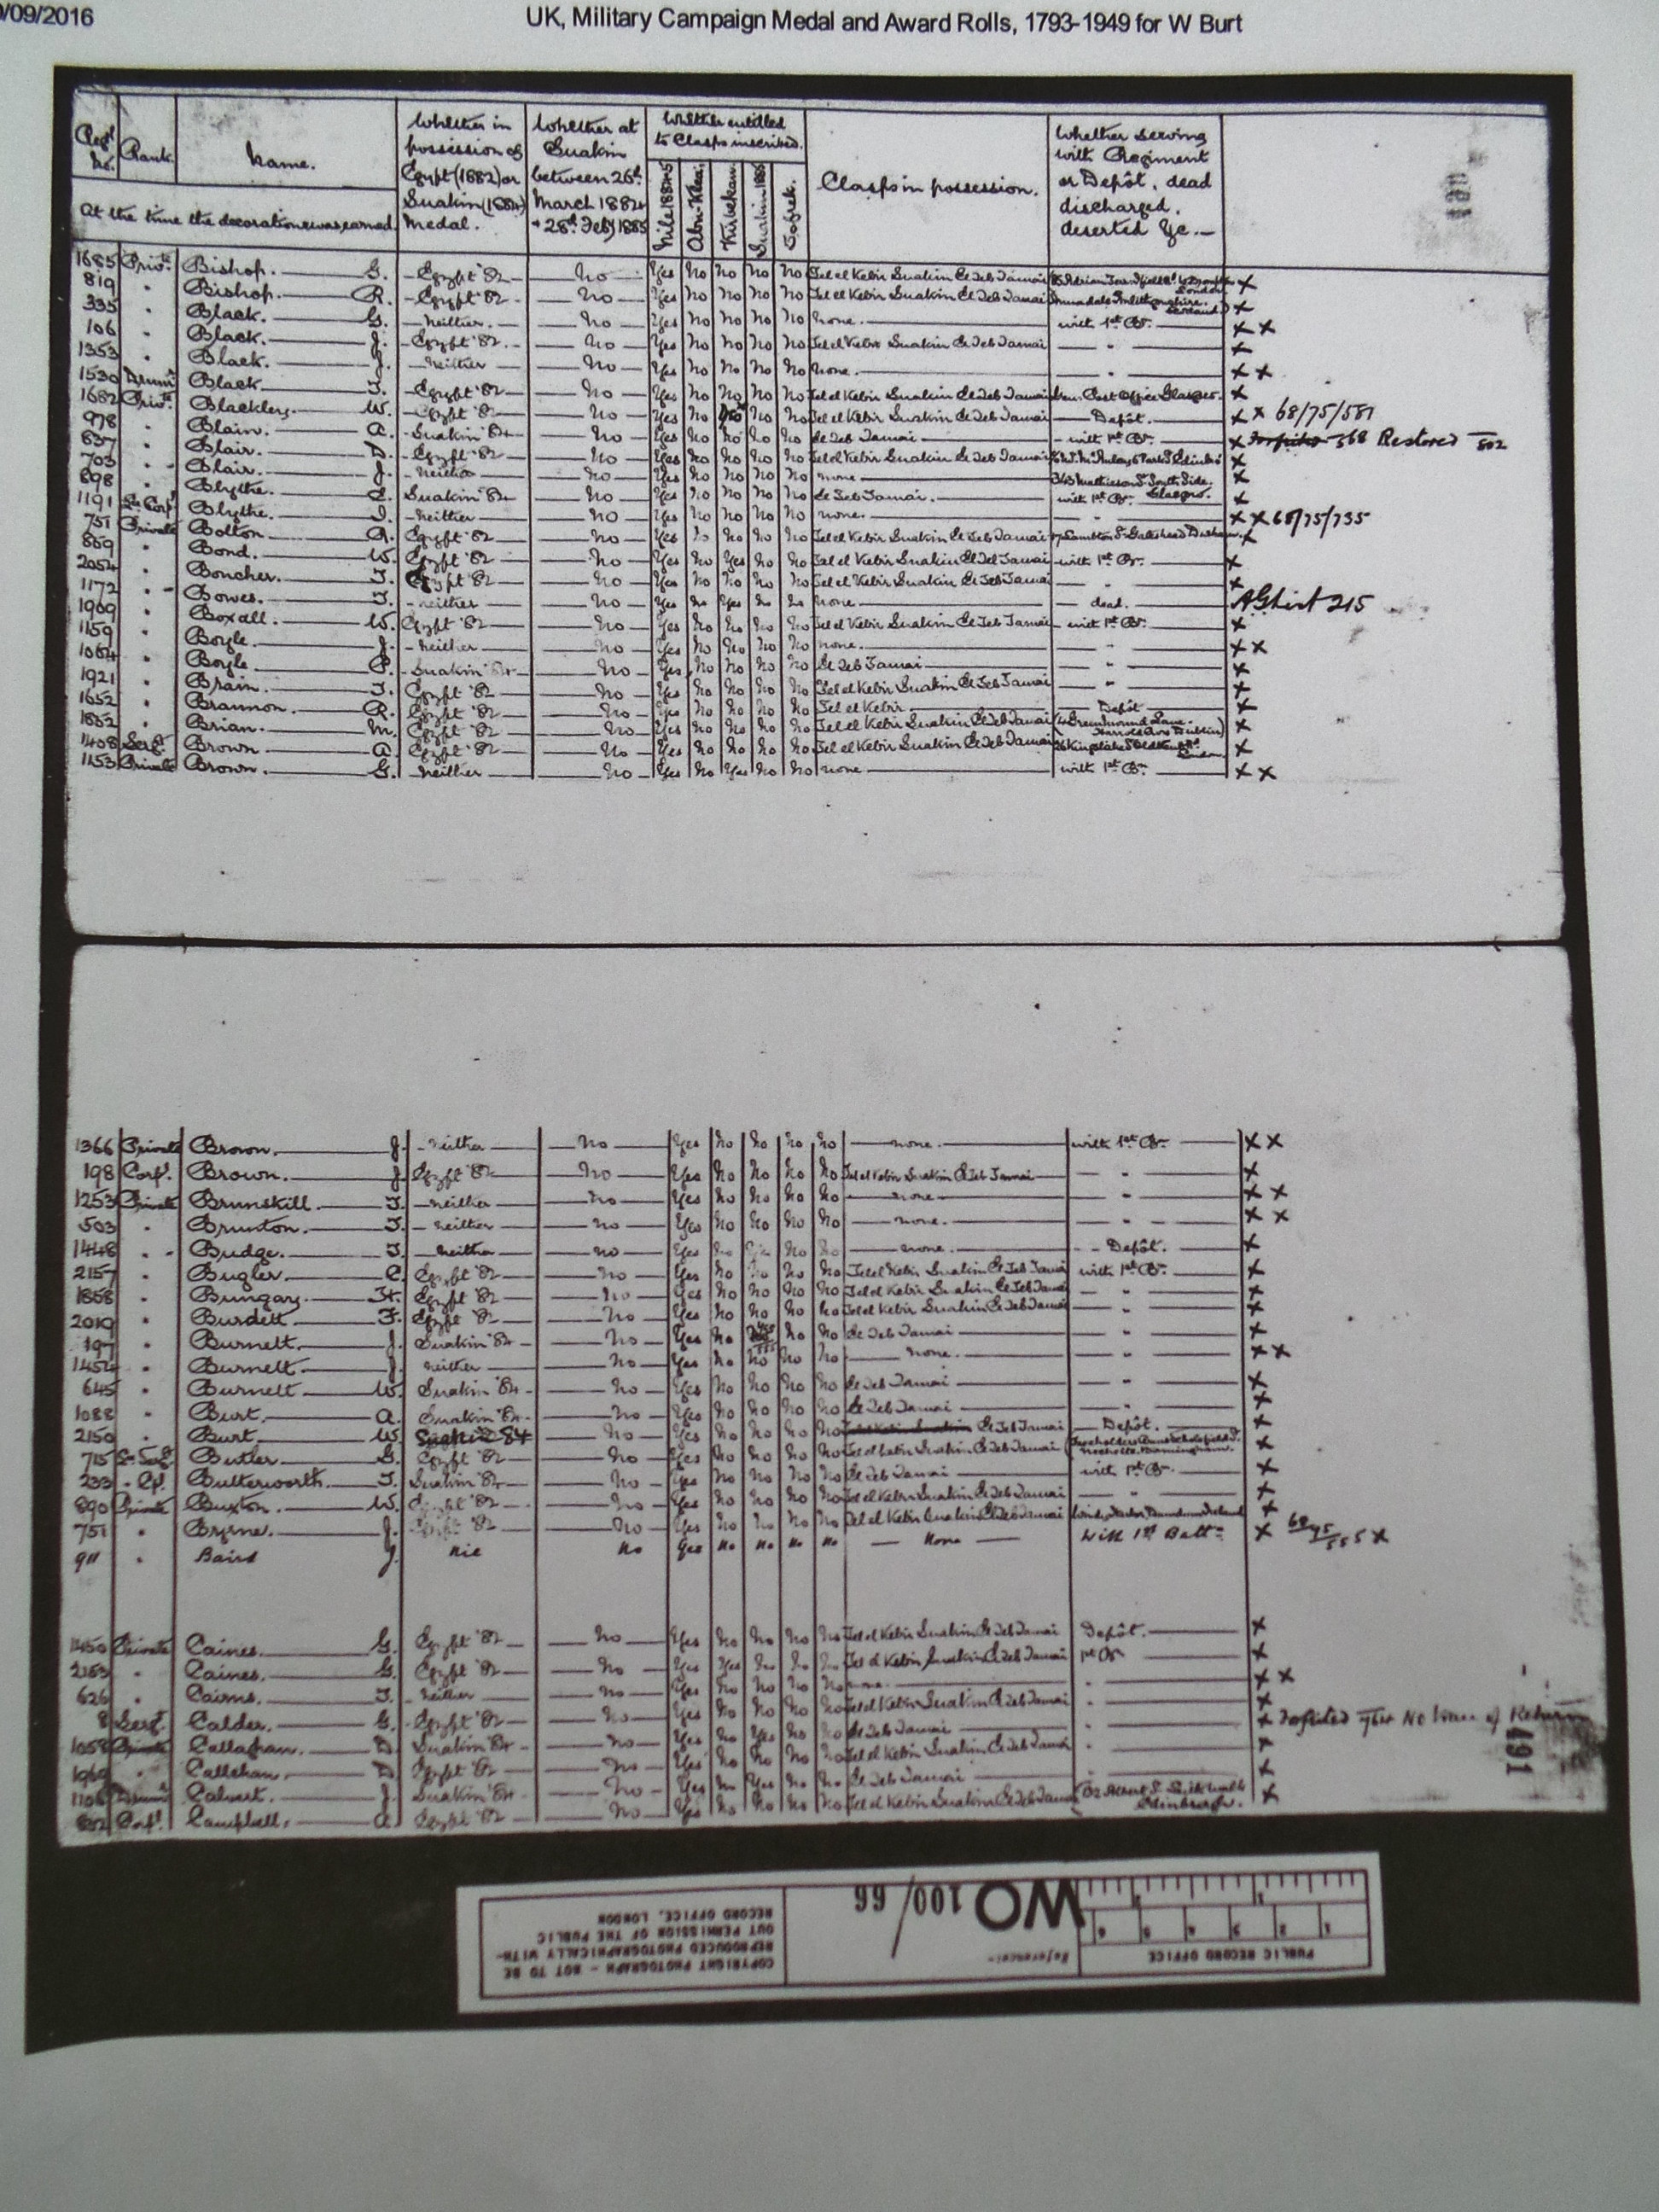 /09/2016
UK, Military Campaign Medal and Award Rolls, 1793-1949 for W Burt
Regtl No. Rank. Name. Whether in possession of Egypt (1882) or Suakin (1884) Medal. Whether at Suakin between 26th March 1884 + 28th Feby 1885 Whether entitled to Clasps inscribed. Nile 1884-5 Abu-Klea. Kirbekan. Suakin 1885 Tofrek. Clasps in possession. Whether serving with Regiment or Depôt, dead discharged, deserted &c.
At the time the decoration was earned.
1685 Priv. Bishop. G. Egypt '82 No Yes No No No No Tel el Kebir Suakin El Teb Tamai London X
819 " Bishop. R. Egypt '82 No Yes No No No No Tel el Kebir Suakin El Teb Tamai X
335 " Black. G. neither. No Yes No No No No none. with 1st Bn. X X
106 " Black. J. Egypt '82. No Yes No No No No Tel el Kebir Suakin El Teb Tamai " X
1353 " Black. J. neither No Yes No No No No none. " X X
1530 Drumr Black T. Egypt '82 No Yes No No No No Tel el Kebir Suakin El Teb Tamai Gen. Post Office Glasgow. X
1682 Priv. Blackley. W. Egypt '82 No Yes No No No Tel el Kebir Suakin El Teb Tamai Depôt. X X 68/75/581
978 " Blain. A. Suakin '84 No Yes No No No No El Teb Tamai with 1st Bn. X 568 Restored 502
837 " Blair. D. Egypt '82 No Yes No No No No Tel el Kebir Suakin El Teb Tamai X
703 " Blair. J. neither No Yes No No No No none South Side. Glasgow. X
898 " Blythe. Suakin '84 No Yes No No No No El Teb Tamai. with 1st Bn. X
1191 Lce Corpl Blythe. J. neither No Yes No No No No none. " X X 68/75/735
751 Private Bolton R. Egypt '82 No Yes No No No No Tel el Kebir Suakin El Teb Tamai Gateshead Durham. X
889 " Bond. W. Egypt '82 No Yes No Yes No No Tel el Kebir Suakin El Teb Tamai with 1st Bn. X
2054 " Boncher. T. Egypt '82 No Yes No No No No Tel el Kebir Suakin El Teb Tamai " X
1172 " Bowes. T. neither No Yes No Yes No No none dead. 215
1909 " Boxall. W. Egypt '82 No Yes No No No No Tel el Kebir Suakin El Teb Tamai with 1st Bn. X
1159 " Boyle. J. neither No Yes No No No No none. " X X
1064 " Boyle P. Suakin '84 No Yes No No No No El Teb Tamai " X
1921 " Brain. T. Egypt '82 No Yes No No No No Tel el Kebir Suakin El Teb Tamai " X
1652 " Brannon. R. Egypt '82 No Yes No No No No Tel el Kebir Depôt X
1882 " Brian. M. Egypt '82 No Yes No No No No Tel el Kebir Suakin El Teb Tamai Dublin) X
1408 Sergt. Brown A. Egypt '82 No Yes No No No No Tel el Kebir Suakin El Teb Tamai London. X
1153 Private Brown. G. neither No Yes No Yes No No none with 1st Bn. X X
1366 Private Brown. J. neither No Yes No No No No none. with 1st Bn. X X
198 Corpl. Brown. J. Egypt '82 No Yes No No No No Tel el Kebir Suakin El Teb Tamai " X
1253 Private Brunskill T. neither No Yes No No No No none. " X X
503 " Brunton. T. neither No Yes No No No No none. " X X
1448 " Budge. T. neither No Yes No No No none. Depôt. X
2157 " Bugler C. Egypt '82 No Yes No No No No Tel el Kebir Suakin El Teb Tamai with 1st Bn. X
1858 " Bungay H. Egypt '82 No Yes No No No No Tel el Kebir Suakin El Teb Tamai " X
2019 " Burdett F. Egypt '82 No Yes No No No No Tel el Kebir Suakin El Teb Tamai " X
197 " Burnett J. Suakin '84 No Yes No Yes No No El Teb Tamai " X
1454 " Burnett J. neither No Yes No No No No none. " X X
645 " Burnett W. Suakin '84 No Yes No No No No El Teb Tamai " X
1088 " Burt. A. Suakin '84 No Yes No No No No El Teb Tamai " X
2150 " Burt W. Suakin 84 No Yes No No No No Tel el Kebir Suakin El Teb Tamai Depôt. X
715 Butler G. Egypt '82 No Yes No No No No Tel el Kebir Suakin El Teb Tamai Birmingham. X
233 " Cpl. Butterworth. T. Suakin '84 No Yes No No No No El Teb Tamai with 1st Bn. X
890 Private Buxton W. Egypt '82 No Yes No No No No Tel el Kebir Suakin El Teb Tamai " X
751 " Byrne. J. Egypt '82 No Yes No No No No Tel el Kebir Suakin El Teb Tamai Ireland X
911 " Baird J. No Yes No No No No None With 1st Battn X 68/75/555 X
1450 Private Caines. G. Egypt '82 No Yes No No No No Tel el Kebir Suakin El Teb Tamai Depôt. X
2153 " Caines. G. Egypt '82 No Yes Yes No No No Tel el Kebir Suakin El Teb Tamai 1st Bn X
626 " Cairns. T. neither No Yes No No No No none. " X X
8 Sergt. Calder. G. Egypt '82 No Yes No No No No Tel el Kebir Suakin El Teb Tamai " X
1058 Private Callaghan. D. Suakin '84 No Yes No Yes No No El Teb Tamai " X Forfeited No trace of Return
1060 " Callahan. D. Egypt '82 No Yes No No No No Tel el Kebir Suakin El Teb Tamai " X
Drumr Calvert. J. Suakin '84 No Yes No Yes No No El Teb Tamai " X
Corpl. Campbell. A. Egypt '82 No Yes No No No No Tel el Kebir Suakin El Teb Tamai Edinburgh. X
491
PUBLIC RECORD OFFICE
1 2 3 4 5 6
1 2
Reference:-
WO 100/66
COPYRIGHT PHOTOGRAPH - NOT TO BE
REPRODUCED PHOTOGRAPHICALLY WITH-
OUT PERMISSION OF THE PUBLIC
RECORD OFFICE, LONDON